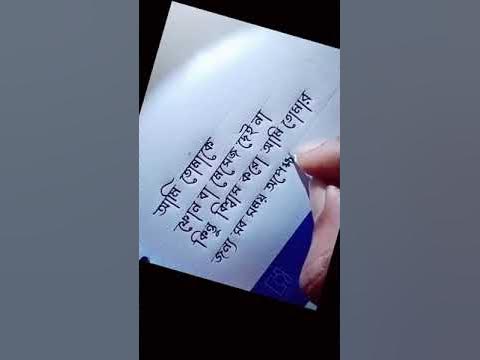 আমি তোমাকে
ফোন বা মেসেজ দেই না
কিন্তু বিশ্বাস করো আমি তোমার
জন্যে সব সময় অপেক্ষ